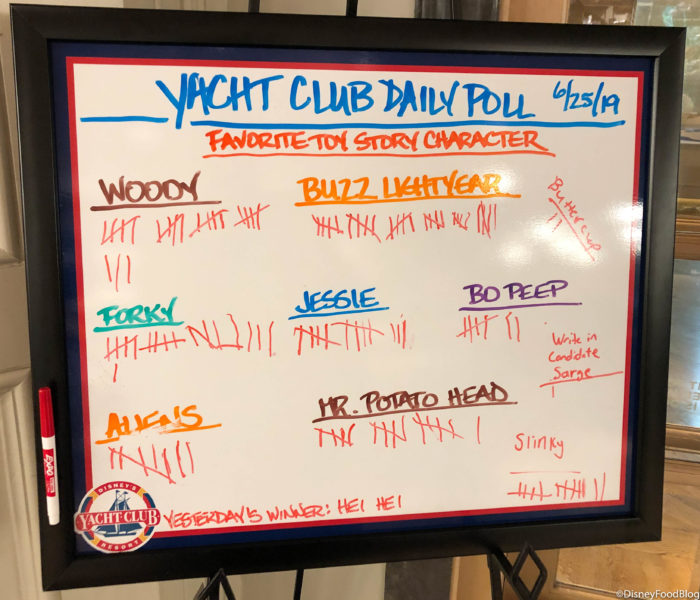 YACHT CLUB DAILY POLL 6/25/19
FAVORITE TOY STORY CHARACTER
WOODY
BUZZ LIGHTYEAR
Buttercup
FORKY
JESSIE
BO PEEP
Write in
Candidate
Sarge
ALIENS
MR. POTATO HEAD
Slinky
EXPO
DISNEY'S
YACHT CLUB
RESORT
YESTERDAY'S WINNER: HEI HEI
©DisneyFoodBlog